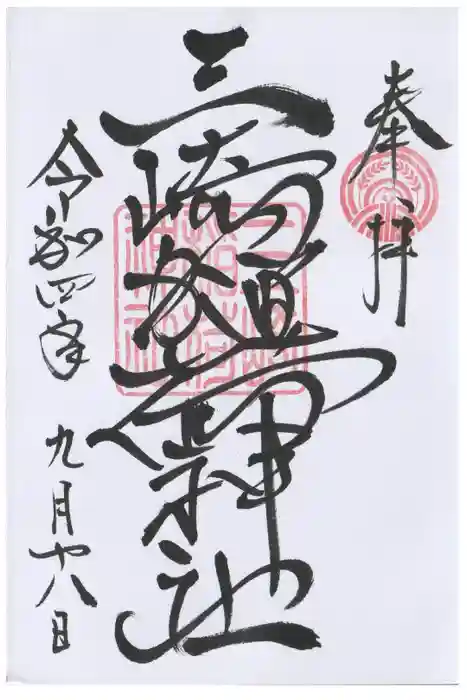 奉拝
三崎稲荷神社
令和四年 九月廿八日